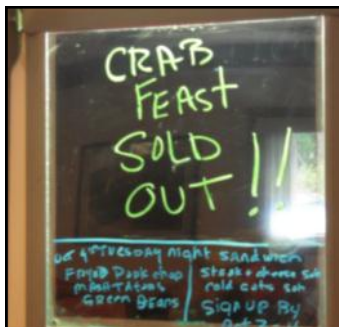 CRAB
FEAST
SOLD
OUT!!
Oct 4th TUESDAY night SANDWICH
FRIED Pork chop
MASH TATERS
GREEN BEANS
steak + cheese sub
cold cuts sub
SIGN UP BY